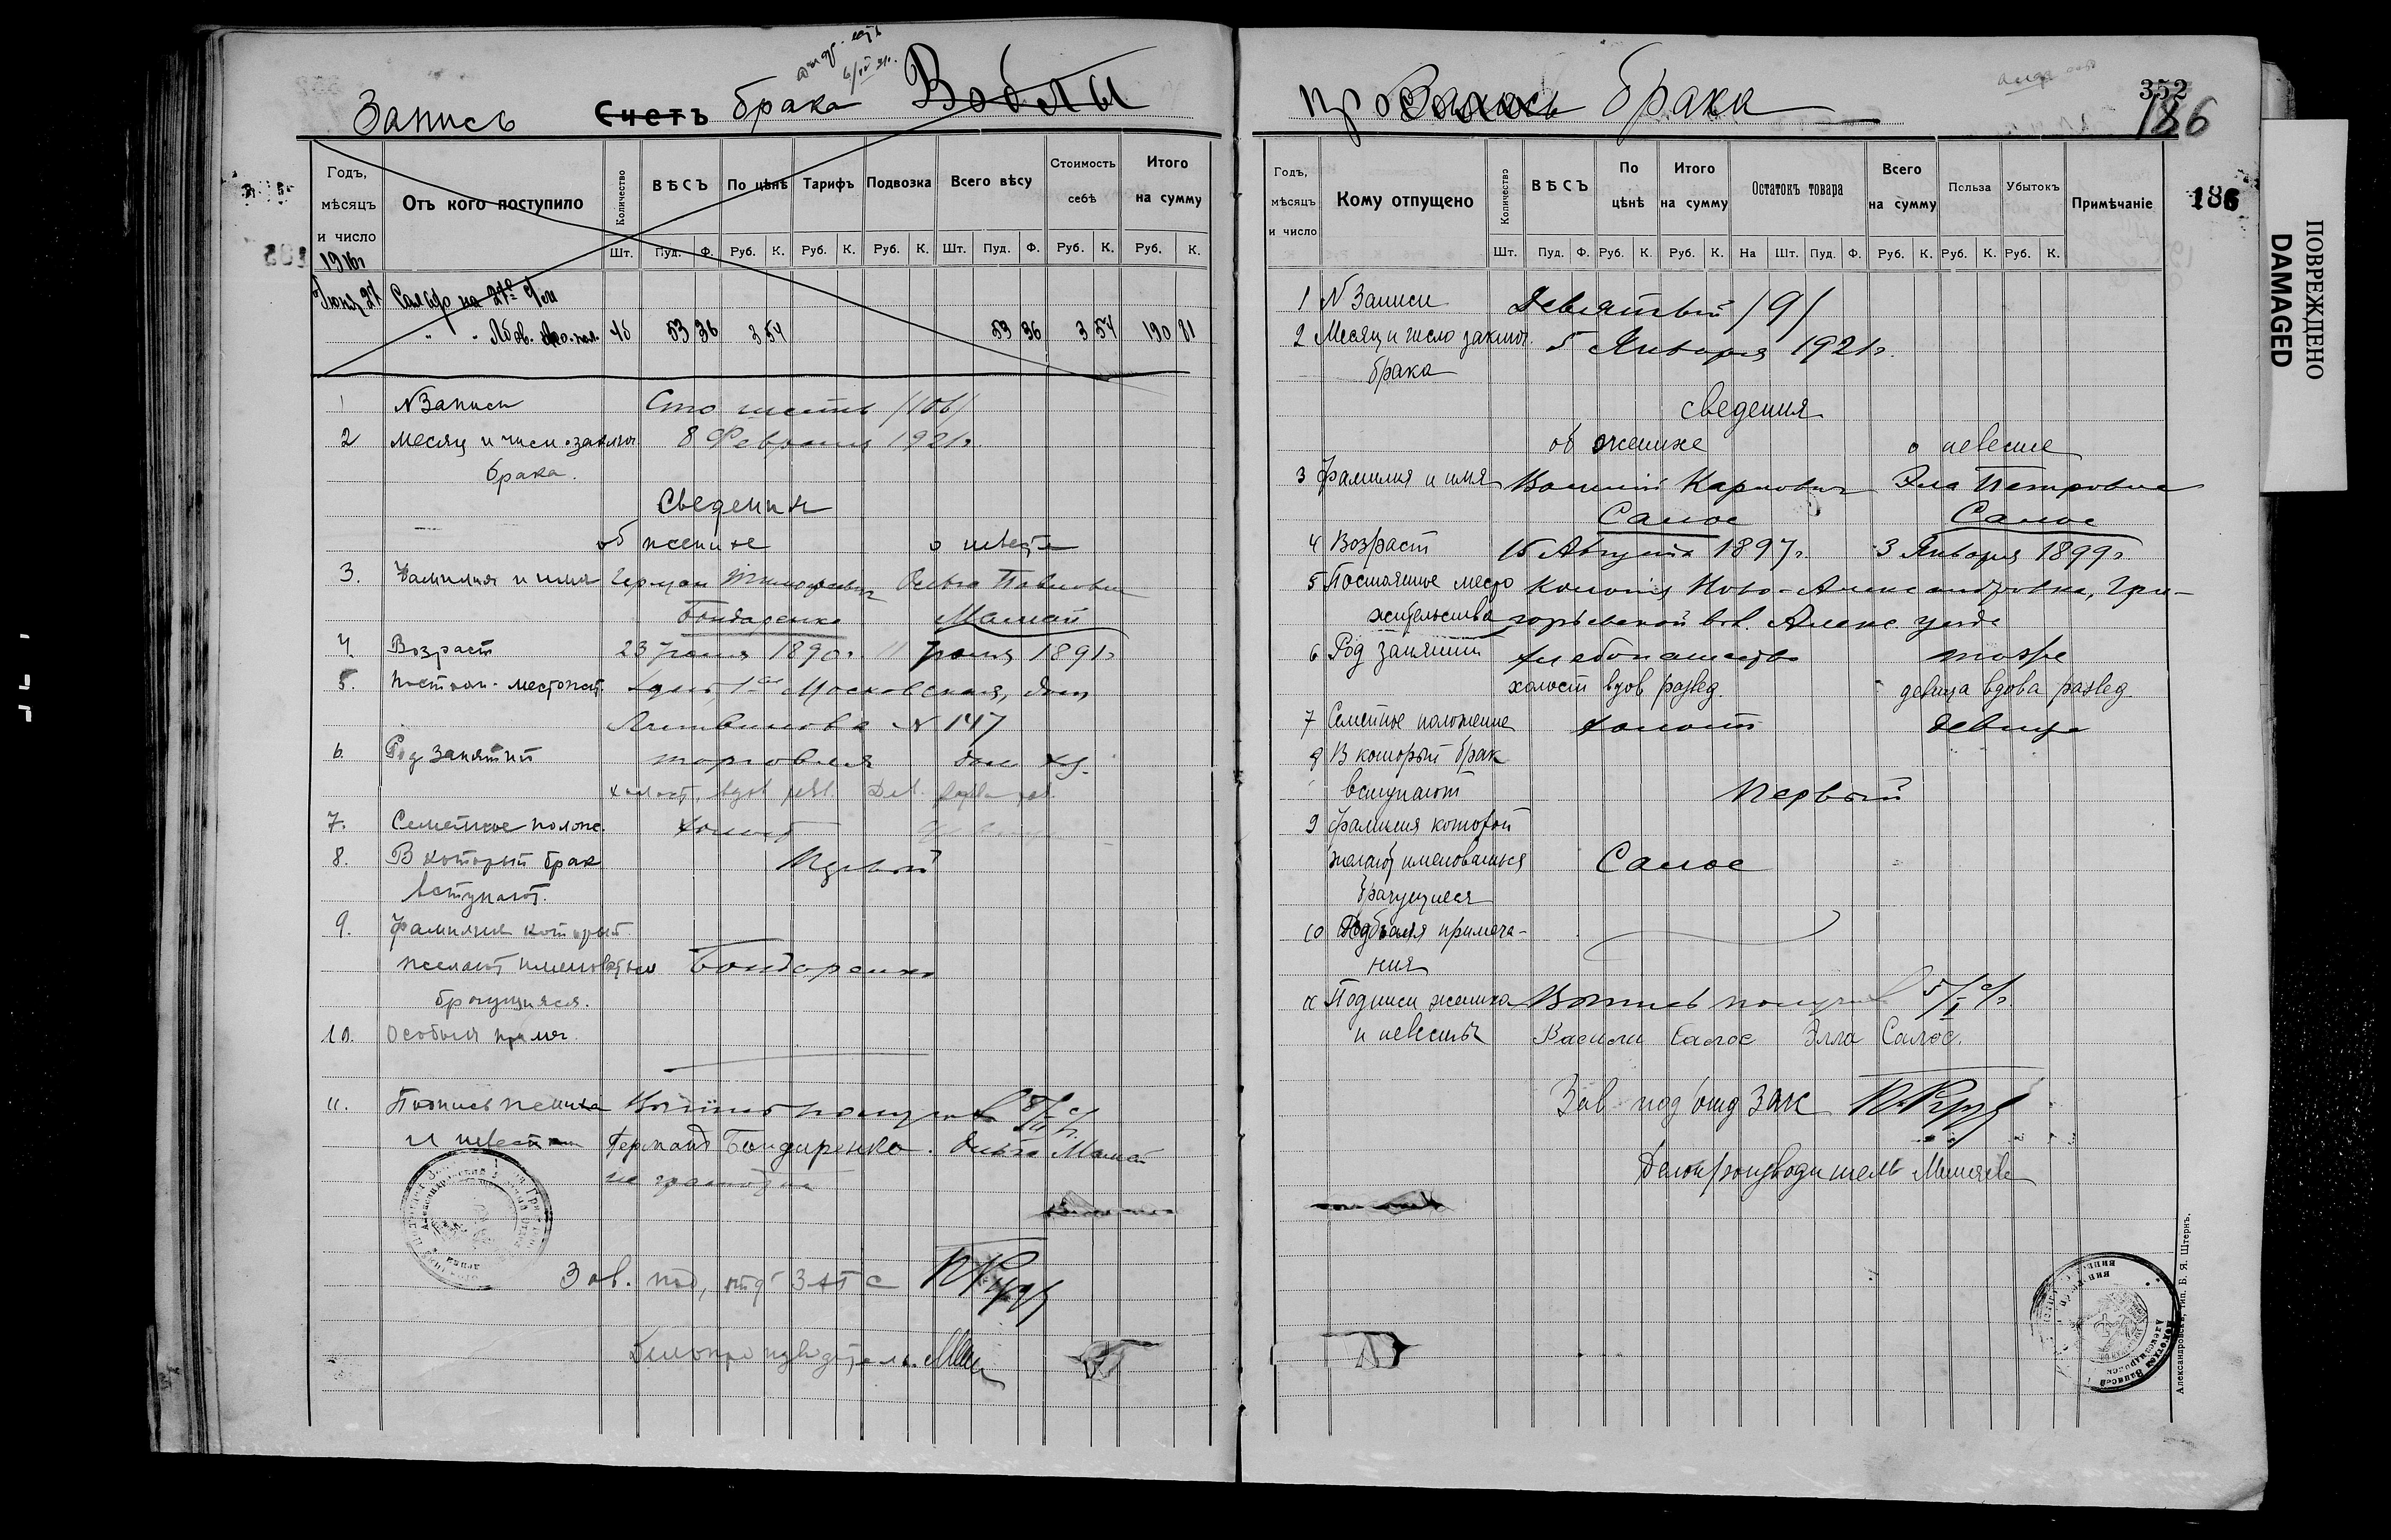 Запись Счетъ брака Воблы
Годъ, мѣсяцъ и число
Отъ кого поступило
Количество
ВѢСЪ
По цѣнѣ
Тарифъ
Подвозка
Всего вѣсу
Стоимость себѣ
Итого на сумму
Шт. Пуд. Ф. Руб. К. Руб. К. Руб. К. Шт. Пуд. Ф. Руб. К. Руб. К.
1916г
Июня 27 Сальдо на 27е
53 36 3 54 53 36 3 54 190 81
1 N Записи Сто шесть /106/
2 Месяц и число заключ. 8 Февраля 1921г.
брака.
Сведения
об женихе о невесте
3. Фамилия и имя Герман Тимофеевич Ольга Павловна
Бондаренко Мамай
4. Возраст 23 1890г. 11 1891г
5. Постоян. местожит. 1ая Московская, дом
Литвинова N 147
6. Род занятий торговля дом. хз.
холост, вдов. разв. Дев.
7. Семейное полож. холост девица
8. В который брак первый
вступают.
9. Фамилия которой
желают именоваться Бондаренко
брачущияся.
10. Особыя примеч.
11. Подпись жениха Выпись получил 8/II с/г.
и невесты Герман Бондаренко. Ольга Мамай
не грамотна
Зав. под, отд ЗАГС
Делопроизводитель
про Запись брака
352
186
186
Годъ, мѣсяцъ и число
Кому отпущено
Количество
ВѢСЪ
По цѣнѣ
Итого на сумму
Остатокъ товара
Всего на сумму
Польза
Убытокъ
Примѣчаніе
Шт. Пуд. Ф. Руб. К. Руб. К. На Шт. Пуд. Ф. Руб. К. Руб. К. Руб. К.
1 N Записи Девятый /9/
2 Месяц и число заключ. 5 Января 1921г.
брака
сведения
об женихе о невесте
3 Фамилия и имя Василий Карпович Эла Петровна
Салос Салос
4 Возраст 15 Августа 1897г. 3 Января 1899г.
5 Постоянное место Колония Ново-Александровка, Гри-
жительства горьевской вол. Алекс. уезда
6 Род занятий хлебопашество тоже
холост вдов развед. девица вдова развед.
7 Семейное положение холост девица
8 В который брак
вступают Первый
9 Фамилия которой
желают именоваться Салос
брачущиеся
10 Особыя примеча-
ния
11 Подписи жениха Выпись получил 5/I с/г.
и невесты Василий Салос Элла Салос.
Зав под отд ЗАГС
Делопроизводитель
Александровскъ, тип. Б. Я. Штернъ.
ПОВРЕЖДЕНО
DAMAGED